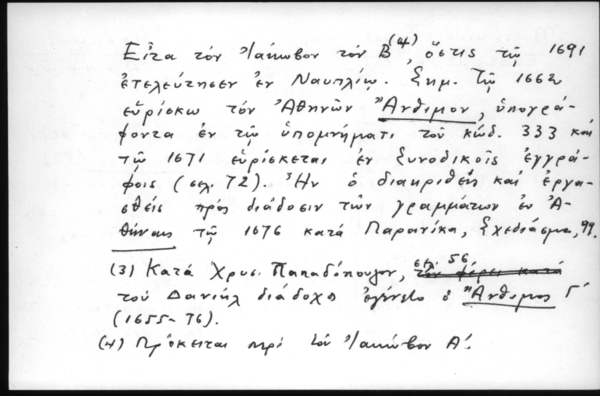 Εἶτα τὸν Ἰάκωβον τὸν Β(4), ὅστις τῷ 1691
ἐτελεύτησεν ἐν Ναυπλίῳ. Σημ. Τῷ 1662
εὑρίσκω τὸν Ἀθηνῶν Ἄνθιμον, ὑπογρά-
φοντα ἐν τῷ ὑπομνήματι τοῦ κώδ. 333 καὶ
τῷ 1671 εὑρίσκεται ἐν Συνοδικοῖς ἐγγρά-
φοις (σελ. 72). Ἦν ὁ διακριθεὶς καὶ ἐργα-
σθεὶς πρὸς διάδοσιν τῶν γραμμάτων ἐν Ἀ-
θήναις τῷ 1676 κατὰ Παρανίκα, Σχεδίασμα, 99.
(3) Κατὰ Χρυσ. Παπαδόπουλον, σελ. 56, τὸν φέρει κατὰ
τοῦ Δανιὴλ διάδοχος ἐγένετο ὁ Ἄνθιμος Γ΄
(1655-76).
(4) Πρόκειται περὶ τὸν Ἰακώβον Α΄.